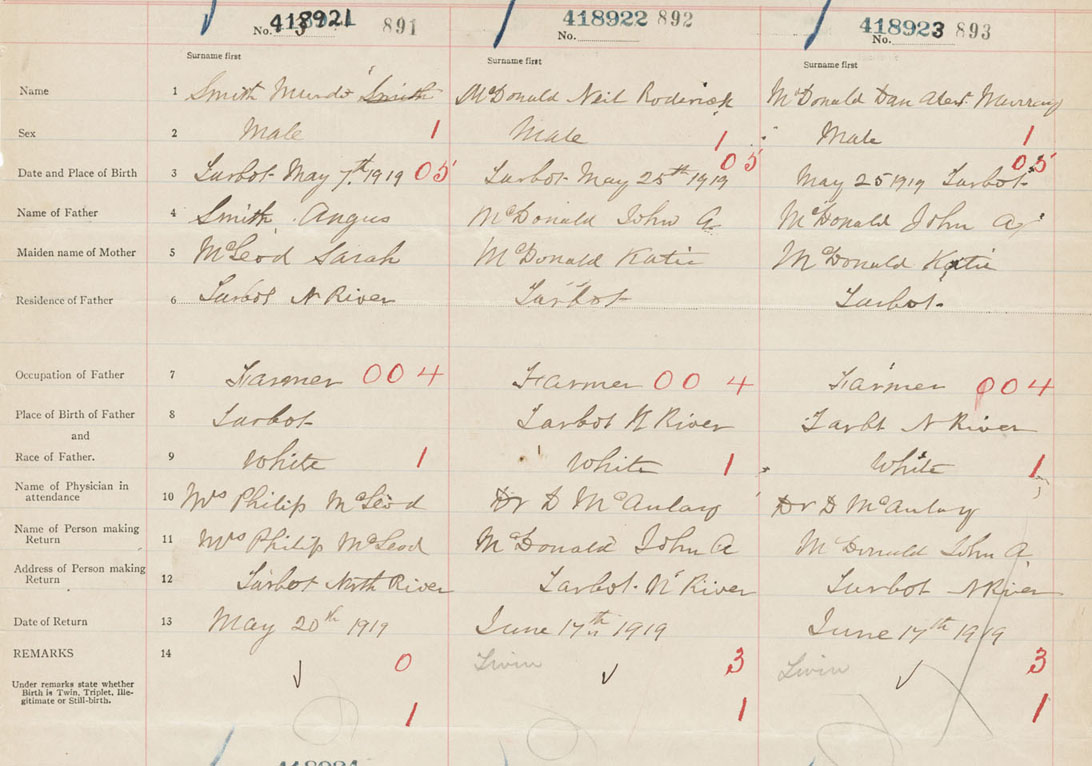 418921 891 418922 892 418923 893
No. 3 No. No.
Surname first Surname first Surname first
Name 1 Smith Murdo Smith McDonald Neil Roderick McDonald Dan Alex. Murray
Sex 2 Male 1 Male 1 Male 1
Date and Place of Birth 3 Tarbot May 7th 1919 05 Tarbot May 25th 1919 05 May 25 1919 Tarbot 05
Name of Father 4 Smith Angus McDonald John A McDonald John A
Maiden name of Mother 5 McLeod Sarah McDonald Katie McDonald Katie
Residence of Father 6 Tarbot N River Tarbot Tarbot
Occupation of Father 7 Farmer 004 Farmer 004 Farmer 004
Place of Birth of Father 8 Tarbot Tarbot N River Tarbt N River
and
Race of Father. 9 White 1 White 1 White 1
Name of Physician in
attendance 10 Mrs Philip McLeod Dr D McAulay Dr D McAulay
Name of Person making
Return 11 Mrs Philip McLeod McDonald John A McDonald John A
Address of Person making
Return 12 Tarbot North River Tarbot N River Tarbot N River
Date of Return 13 May 20th 1919 June 17th 1919 June 17th 1919
REMARKS 14 0 Twin 3 Twin 3
Under remarks state whether
Birth is Twin, Triplet, Ille-
gitimate or Still-birth.
1 1 1